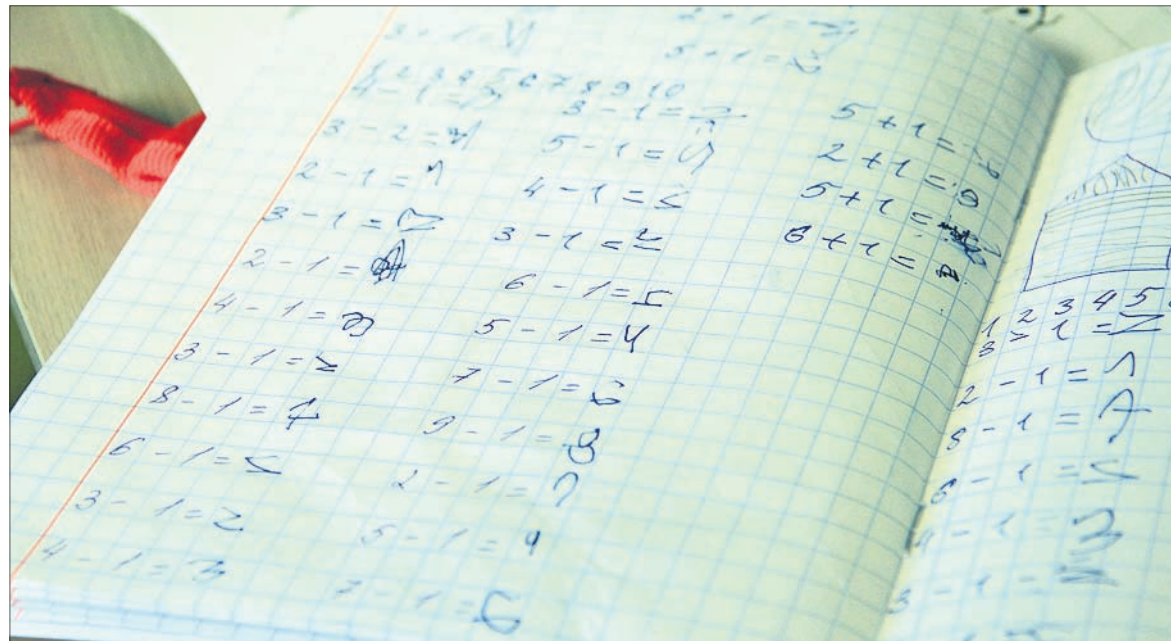 3 + 1 = 4
5 + 1 =
1 2 3 4 5 6 7 8 9 10
4 - 1 = 3
3 - 2 = 1
2 - 1 = 1
3 - 1 = 2
2 - 1 =
4 - 1 = 3
3 - 1 = 2
8 - 1 = 7
6 - 1 = 5
3 - 1 = 2
4 - 1 = 3
3 - 1 = 2
5 - 1 = 4
4 - 1 =
3 - 1 = 2
6 - 1 = 5
5 - 1 = 4
7 - 1 = 6
9 - 1 = 8
2 - 1 = 1
5 - 1 = 4
7 - 1 = 6
5 + 1 = 6
2 + 1 =
5 + 1 =
6 + 1 =
1 2 3 4 5
3 - 1 = 2
2 - 1 = 1
8 - 1 = 7
6 - 1 = 5
4 - 1 = 3
3 - 1 = 2